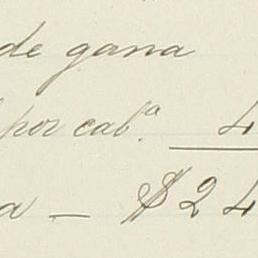 de gana
por cab.ª 4
a — $ 24